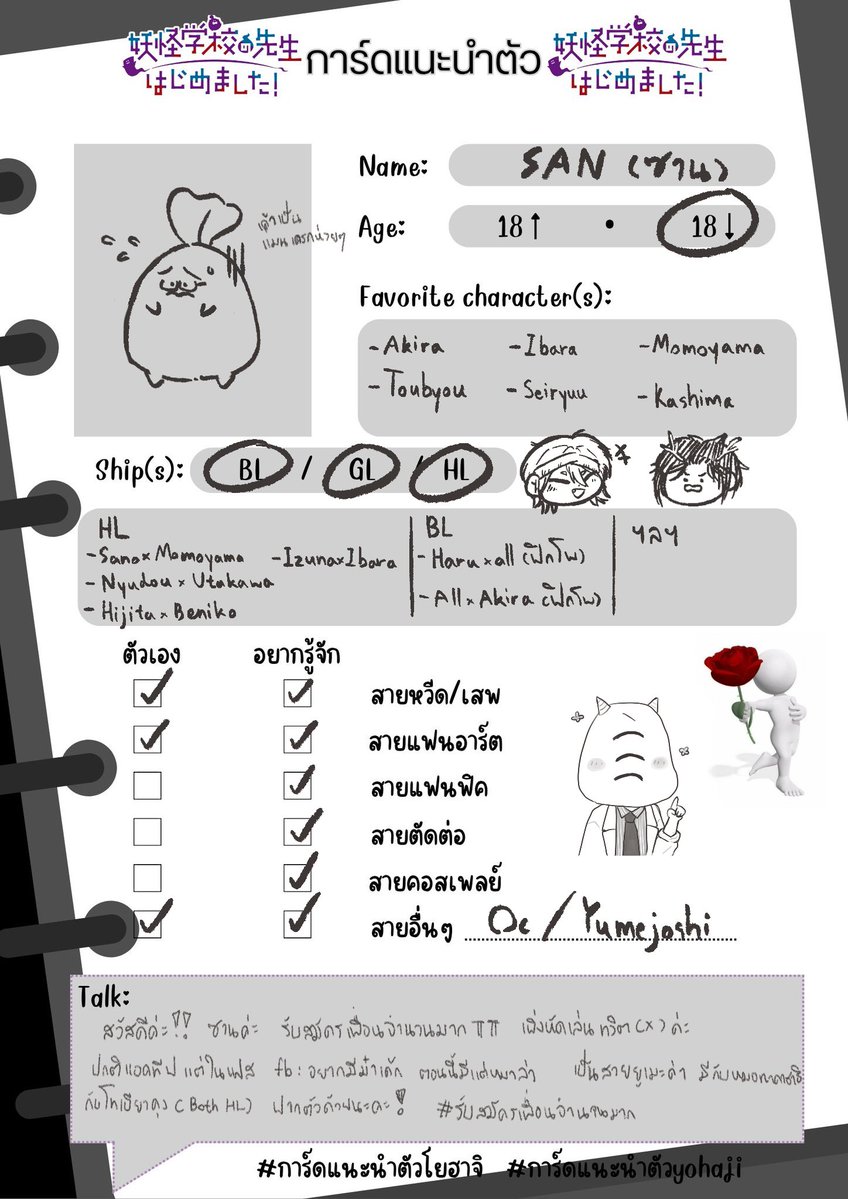 妖怪学校の先生はじめました! การ์ดแนะนำตัว 妖怪学校の先生はじめました!
Name: SAN (ซาน)
Age: 18↑ • 18↓
Favorite character(s):
- Akira - Ibara - Momoyama
- Toubyou - Seiryuu - Kashima
Ship(s): BL / GL / HL
HL
- Sano x Momoyama - Izuna x Ibara
- Nyudou x Utakawa
- Hijita x Beniko
BL
- Haru x all (ฟิกโพ)
- All x Akira (ฟิกโพ)
ฯลฯ
ตัวเอง อยากรู้จัก
สายหวีด/เสพ
สายแฟนอาร์ต
สายแฟนฟิค
สายตัดต่อ
สายคอสเพลย์
สายอื่นๆ Oc / Yumejoshi
Talk:
สวัสดีค่ะ!! ซานค่ะ รับสมัครเพื่อนจำนวนมาก TT เพิ่งหัดเล่นทวิต (X) ค่ะ
ปกติแอคทีฟแต่ในเฟส fb: อยากมีม้าเด็ก ตอนนี้มีแต่หมาล่า เป็นสายยูเมะค่า มีกับหมอ
(Both HL) ฝากตัวด้วยนะคะ! #รับสมัครเพื่อนจำนวนมาก
#การ์ดแนะนำตัวโยฮาจิ #การ์ดแนะนำตัวyohaji